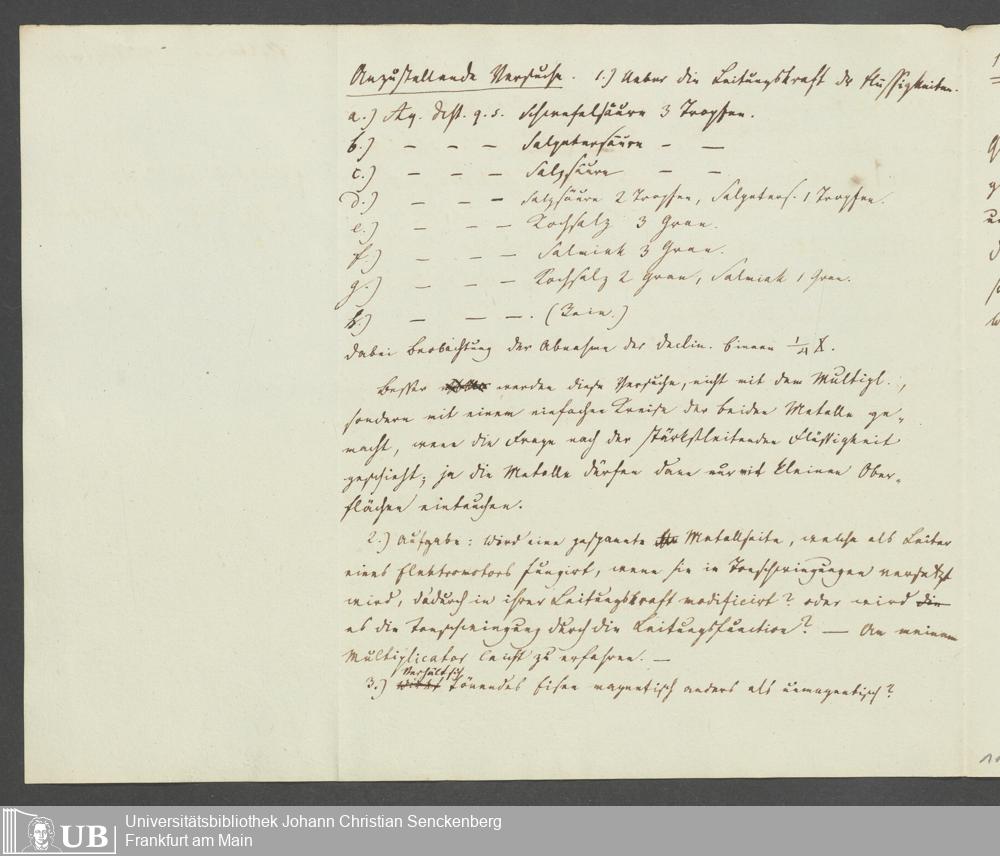 Anzustellende Versuche. 1.) Ueber die Leitungskraft der Flüssigkeiten.
a.) Aq. dest. q. s. Schwefelsäure 3 Tropfen.
b.) — — — Salpetersäure — —
c.) — — — Salzsäure — —
d.) — — — Salzsäure 2 Tropfen, Salpeters. 1 Tropfen.
e.) — — — Kochsalz 3 Gran.
f.) — — — Salmiak 3 Gran.
g.) — — — Kochsalz 2 Gran, Salmiak 1 Gran.
h.) — — —. (Rein.)
Dabei Beobachtung der Abnahme der Declin. binnen
Besser werden diese Versuche, nicht mit dem Multipl.,
sondern mit einem einfachen Kreise der beiden Metalle ge-
macht, wenn die Frage nach der stärkstleitenden Flüssigkeit
geschieht; ja die Metalle dürfen dann nur mit kleinen Ober-
flächen eintauchen.
2.) Aufgabe: Wird eine gespannte Metallsaite, welche als Leiter
eines Elektromotors fungirt, wenn sie in Tonschwingungen versetzt
wird, dadurch in ihrer Leitungskraft modificirt? oder wird die
es die Tonschwingung durch die Leitungsfunction? — An meinem
Multiplicator leicht zu erfahren. —
Verhält sich
3.) Wirkt tönendes Eisen magnetisch anders als unmagnetisch?
UB
Universitätsbibliothek Johann Christian Senckenberg
Frankfurt am Main